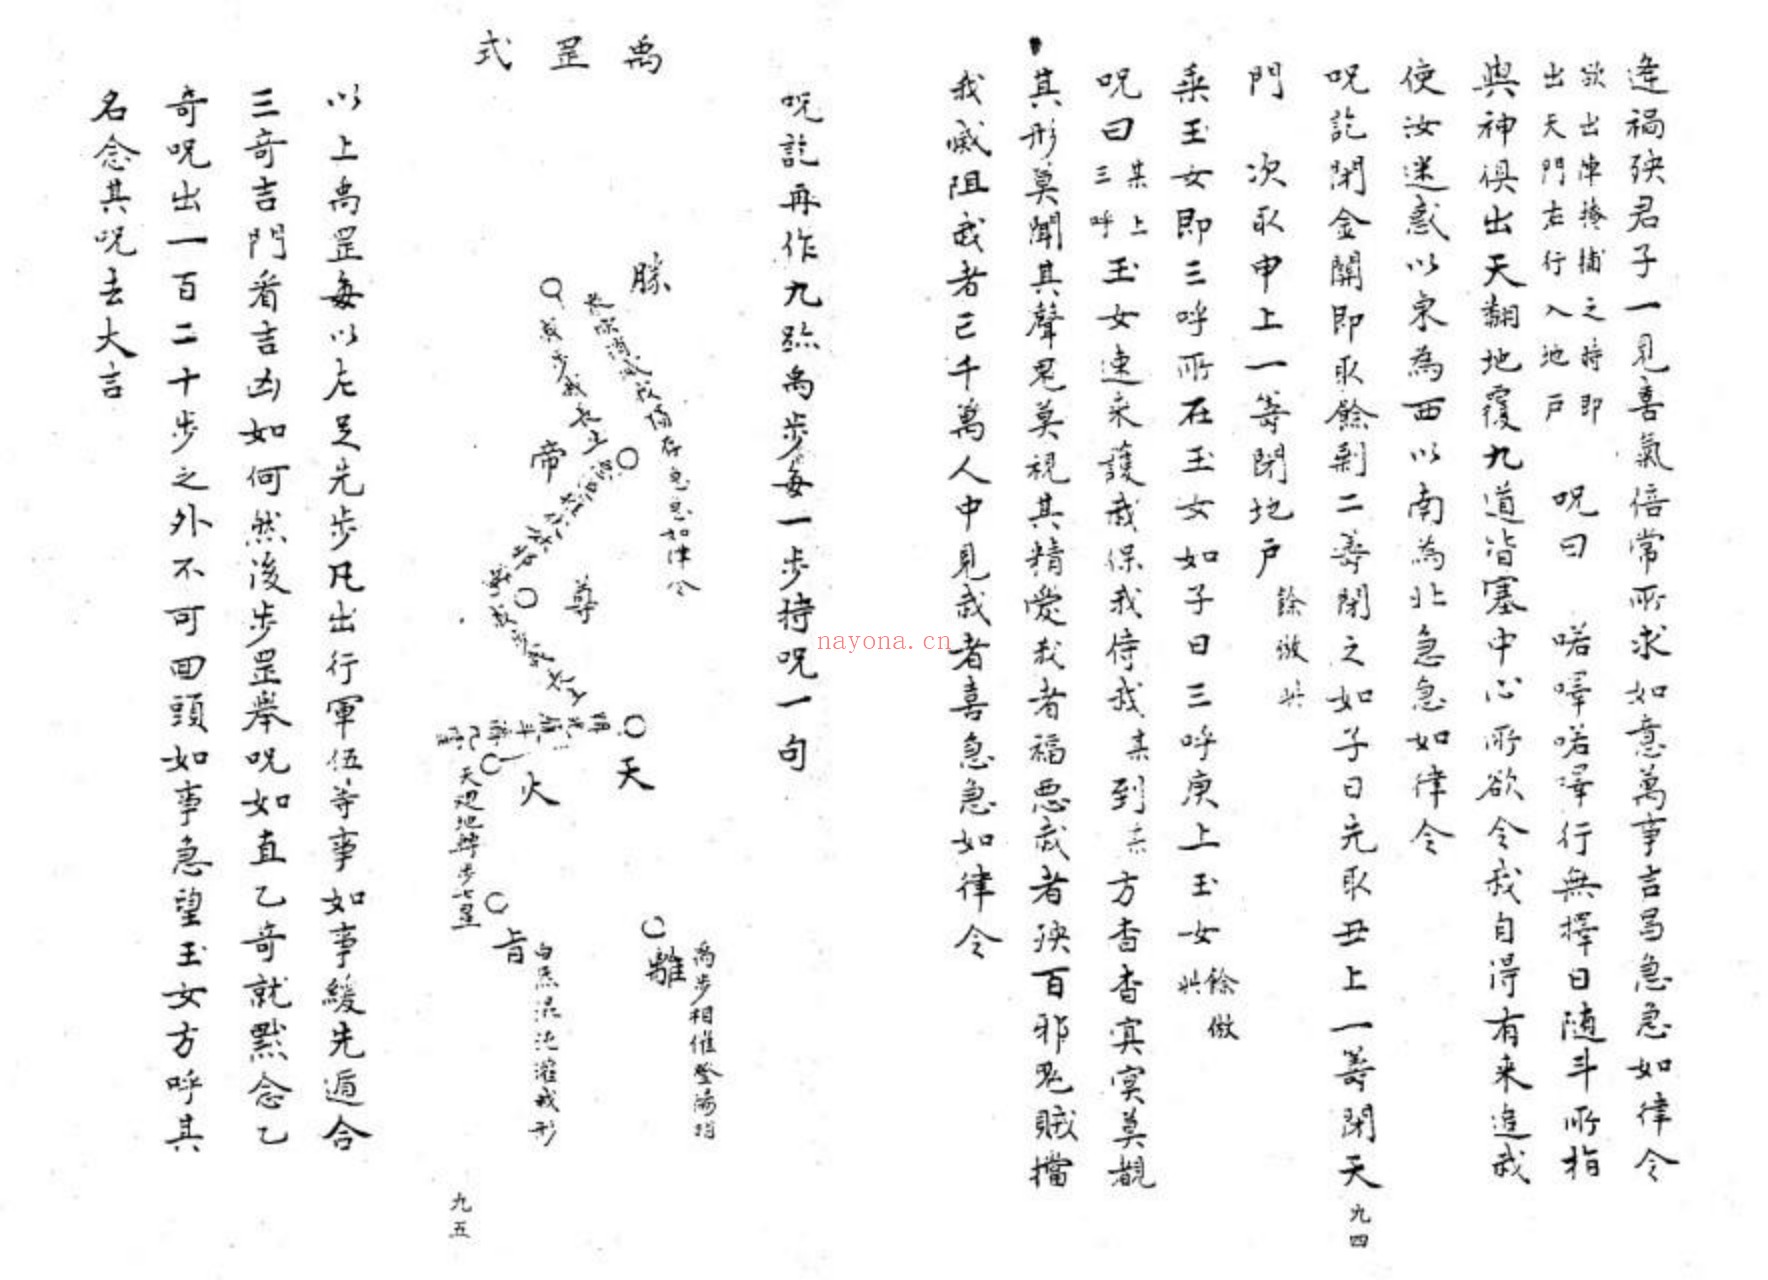 逢禍殃君子一見喜氣倍常所求如意萬事吉昌急急如律令
欲出陣捲捕之時即
出天門左行入地戸
呪曰 喏嗶喏嗶行無擇日随斗所指
與神俱出天翻地覆九道皆塞中心所欲令我自得有来追我
使汝迷惑以東為西以南為北急急如律令
呪訖閉金關即取餘剩二筭閉之如子日先取丑上一筭閉天
門 次取申上一筭閉地户
餘倣此
乘玉女即三呼所在玉女如子日三呼庚上玉女
餘倣
此
呪曰
某上
三呼
玉女速来護我保我侍我某到某方杳杳冥冥莫覩
其形莫聞其聲鬼莫視其精愛我者福惡我者殃百邪鬼賊擋
我滅阻我者亡千萬人中見我者喜急急如律令
九四
呪訖再作九跡禹步每一步持呪一句
禹罡式
勝
帝
尊
天
火
旨
離
禹步相催登陽明
白炁混沌灌我形
天迴地轉步七星
急急如律令
以上禹罡每以左足先步凡出行軍伍等事如事緩先遁合
三奇吉門看吉凶如何然後步罡舉呪如直乙奇就黙念乙
奇呪出一百二十步之外不可回頭如事急望玉女方呼其
名念其呪去大吉
九五
nayona.cn